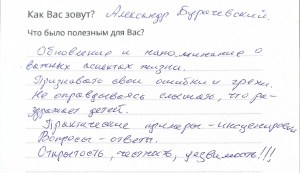 Как Вас зовут? Александр Бурачевский.
Что было полезным для Вас?
Обновление и напоминание о
важных аспектах жизни.
Признавать свои ошибки и грехи.
Не оправдываясь слышать, что раз-
дражает детей.
Практические примеры - инсценировки
Вопросы - ответы.
Открытость, честность, уязвимость!!!